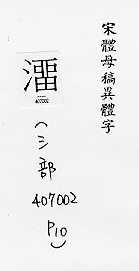 宋體母稿異體字
407002
(氵部
407002
P10)